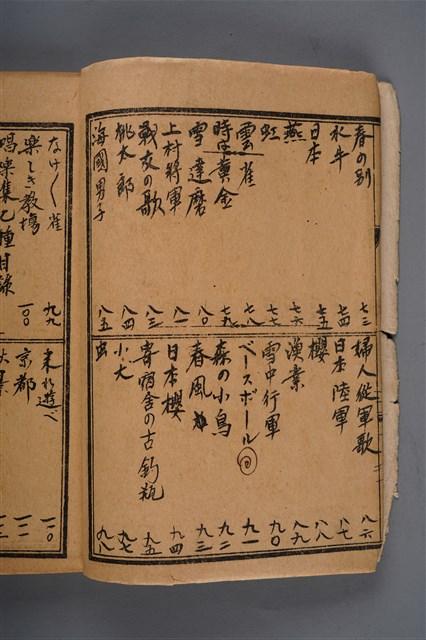 春の別 七三
水牛 七四
日本 七五
燕 七六
虹 七七
雲雀 七八
時は黄金 七九
雪達磨 八〇
上村将軍 八一
戦友の歌 八三
桃太郎 八四
海國男子 八五
婦人従軍歌 八六
日本陸軍 八七
櫻 八八
漁業 八九
雪中行軍 九〇
ベースボール 九一
森の小鳥 九二
春風 九三
日本櫻 九四
寄宿舎の古釣瓶 九五
小犬 九七
虫 九八
なけ〱雀 九九
楽しき教場 一〇〇
唱歌集乙種目録
来れ遊べ
京都